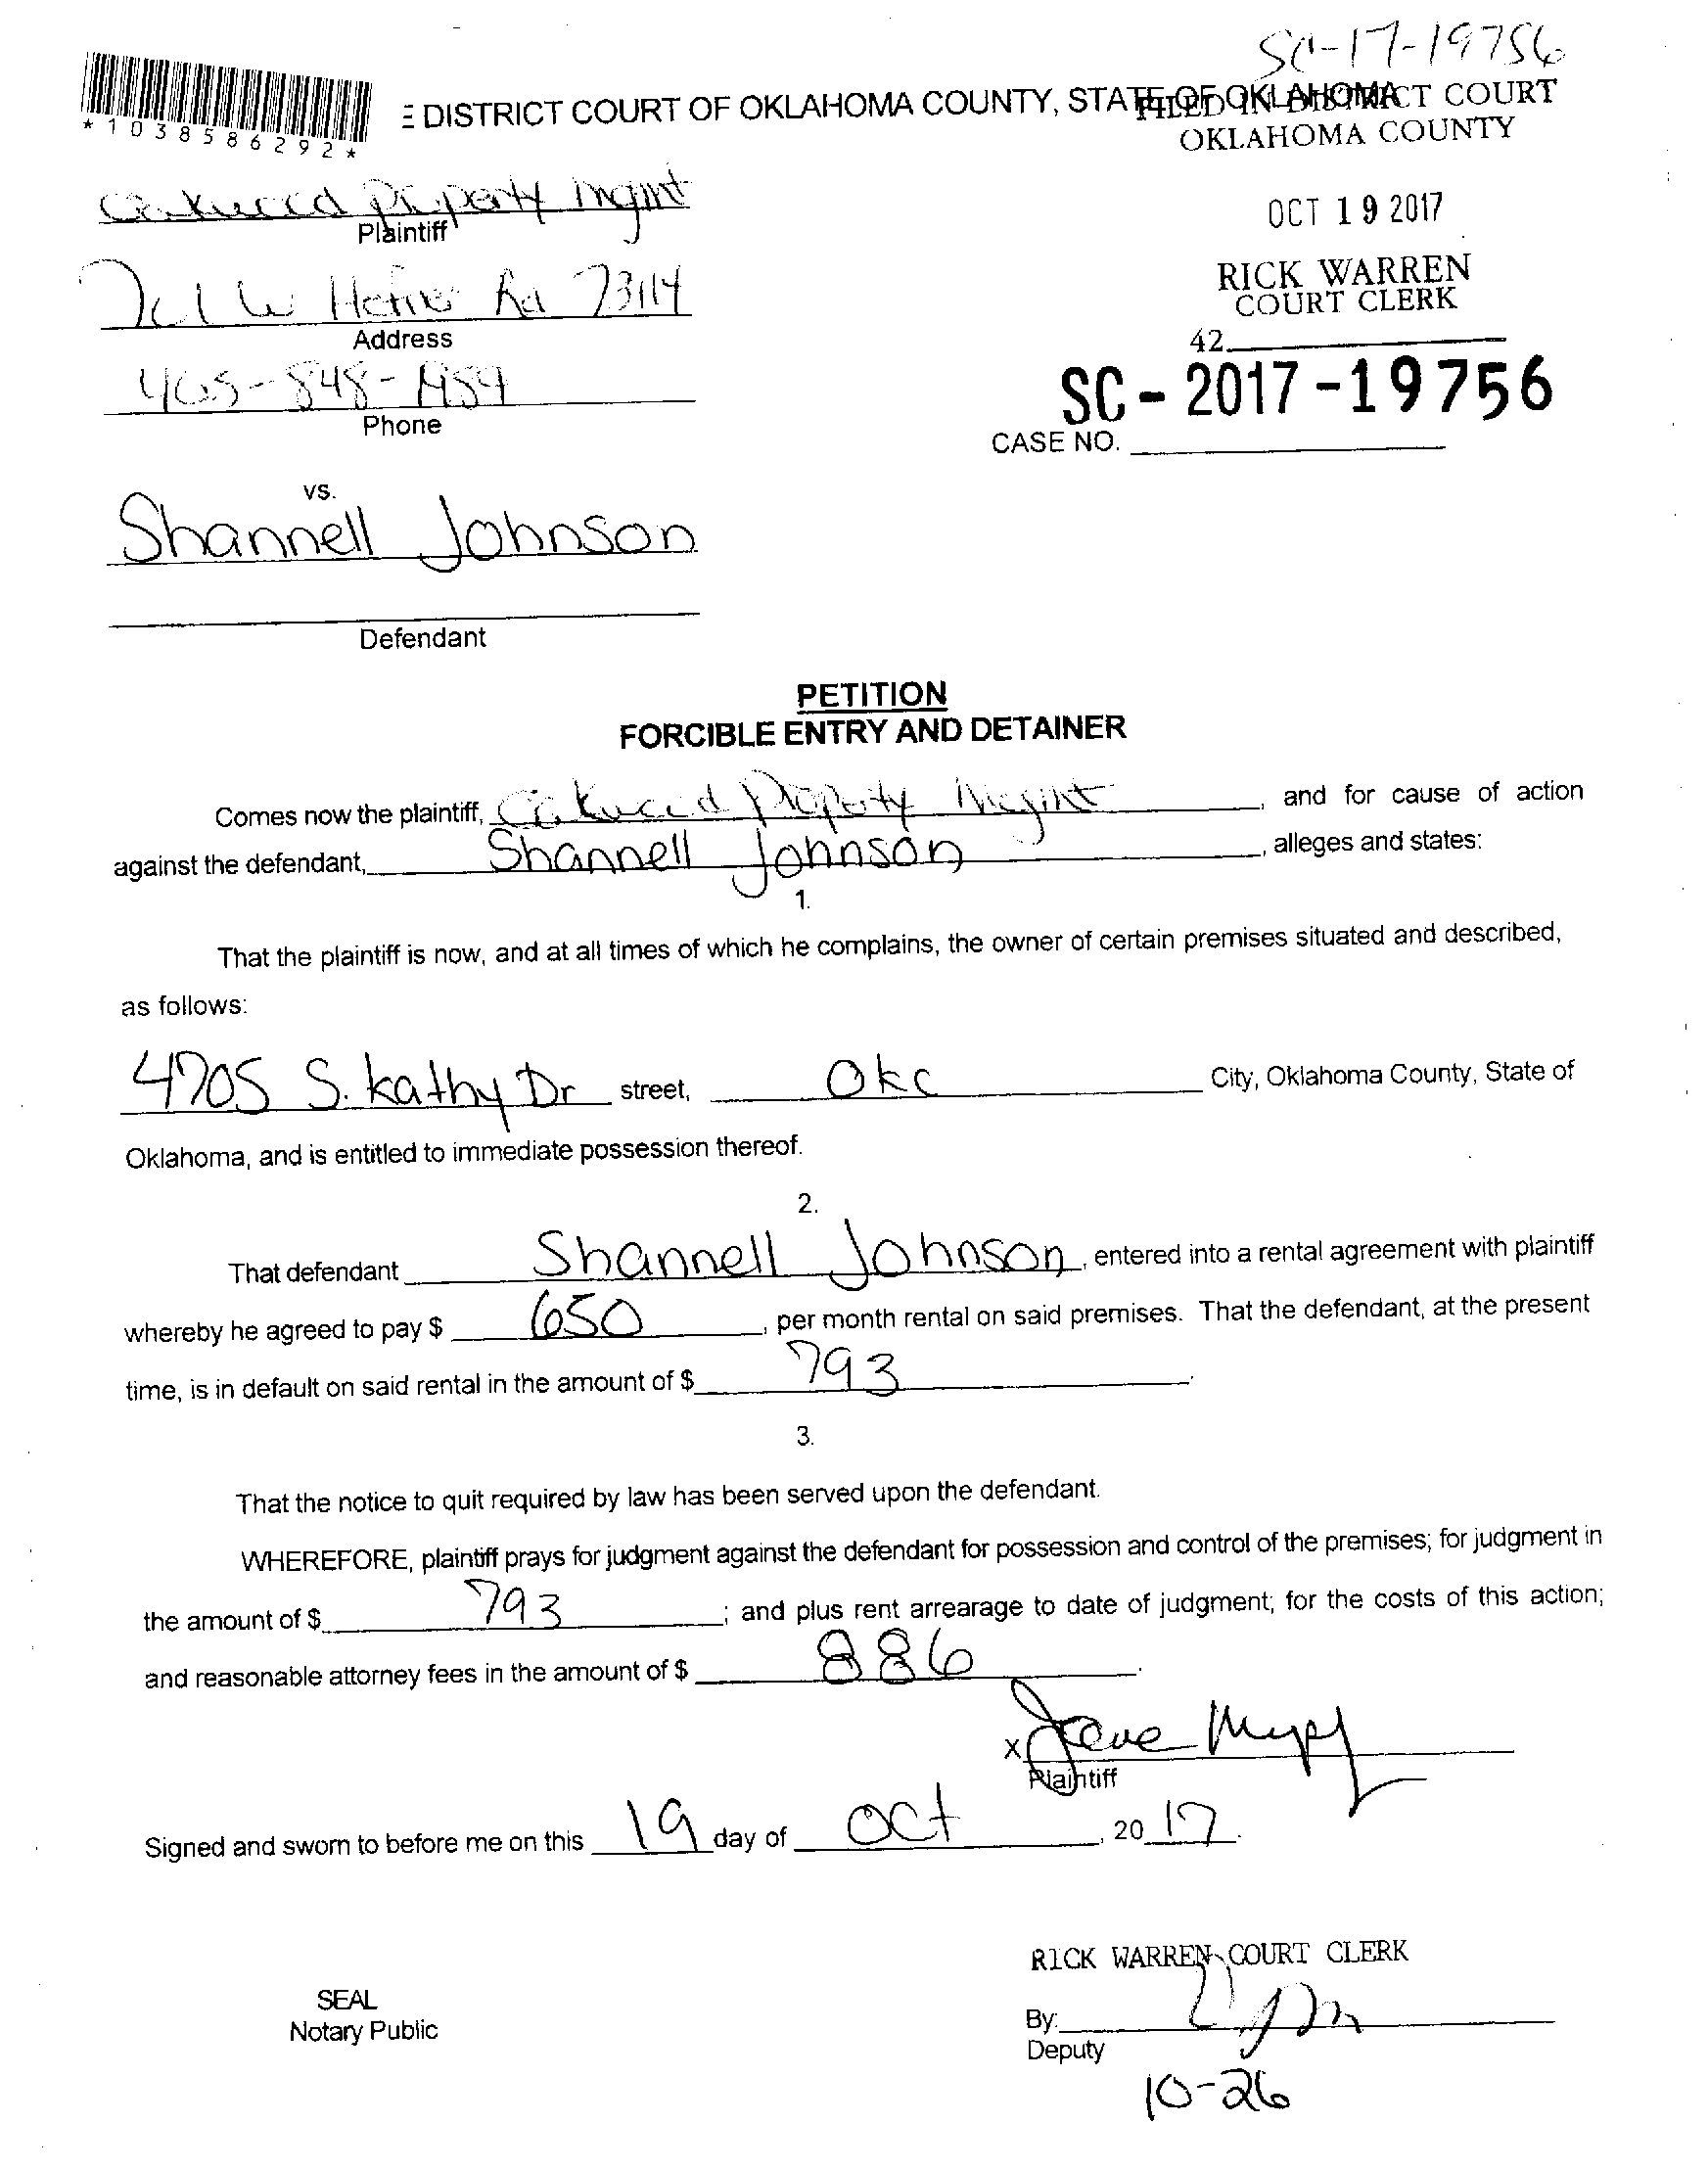 SC-17-19756
*1038586292*
E DISTRICT COURT OF OKLAHOMA COUNTY, STATE OF OKLAHOMA
FILED IN DISTRICT COURT
OKLAHOMA COUNTY
Property mgmt
Plaintiff
OCT 19 2017
W Hefner Rd 73114
Address
RICK WARREN
COURT CLERK
42
405-848-
Phone
SC - 2017 - 19756
CASE NO.
vs.
Shannell Johnson
Defendant
PETITION
FORCIBLE ENTRY AND DETAINER
Comes now the plaintiff, Property Mgmt, and for cause of action
against the defendant, Shannell Johnson, alleges and states:
1.
That the plaintiff is now, and at all times of which he complains, the owner of certain premises situated and described,
as follows:
4705 S. Kathy Dr street, OKC City, Oklahoma County, State of
Oklahoma, and is entitled to immediate possession thereof.
2.
That defendant Shannell Johnson, entered into a rental agreement with plaintiff
whereby he agreed to pay $ 650, per month rental on said premises. That the defendant, at the present
time, is in default on said rental in the amount of $ 793.
3.
That the notice to quit required by law has been served upon the defendant.
WHEREFORE, plaintiff prays for judgment against the defendant for possession and control of the premises; for judgment in
the amount of $ 793; and plus rent arrearage to date of judgment; for the costs of this action;
and reasonable attorney fees in the amount of $ 886.
X
Plaintiff
Signed and sworn to before me on this 19 day of Oct, 20 17.
RICK WARREN COURT CLERK
SEAL
Notary Public
By:
Deputy
10-26